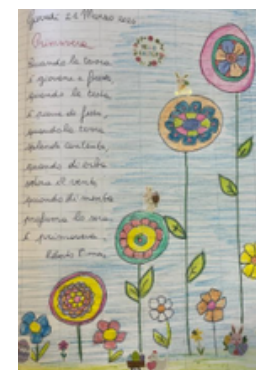 Giovedì 21 Marzo
Primavera
Quando la terra
è giovane e fresca,
quando la testa
è piena di festa,
quando la terra
splende contenta,
quando di erba
odora il vento,
quando di menta
profuma la sera,
è primavera.
Roberto